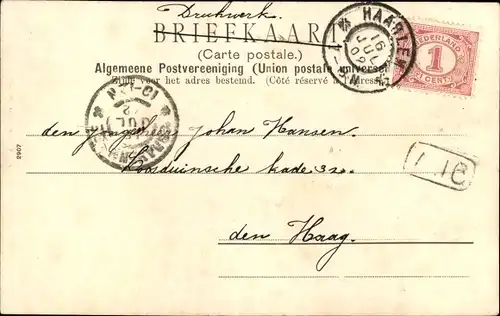 Drukwerk.
BRIEFKAART
(Carte postale.)
Algemeene Postvereeniging (Union postale universelle)
Zijde voor het adres bestemd. (Côté réservé à l'adresse.)
HAARLEM
16 JUL 02
NEDERLAND
1
CENT
den Jongeheer Johan Hansen.
kade 320.
den Haag.
2907